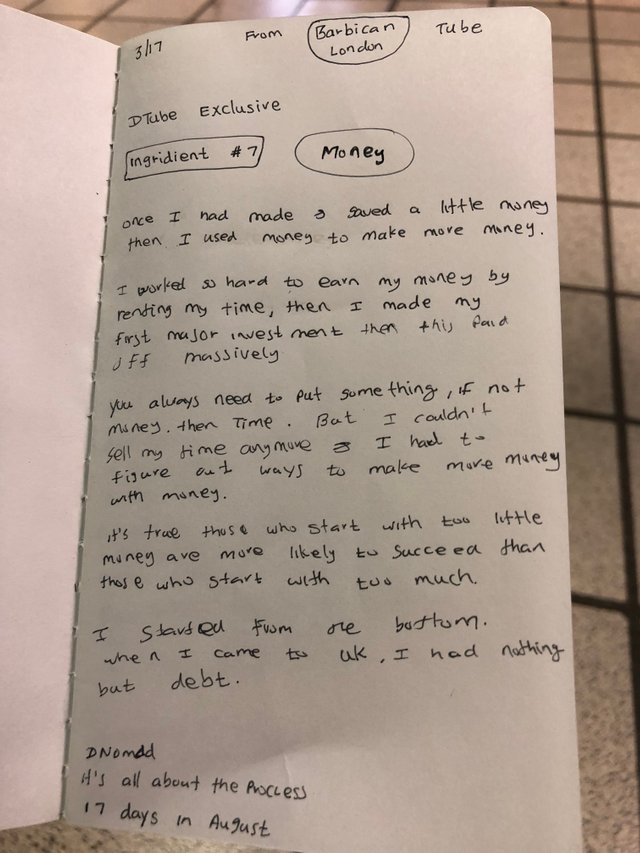 3/17 From Barbican London Tube
DTube Exclusive
Ingridient #7 Money
once I had made & saved a little money
then I used money to make more money.
I worked so hard to earn my money by
renting my time, then I made my
first major investment then this paid
off massively
you always need to put something, if not
money. then Time. But I couldn't
sell my time anymore & I had to
figure out ways to make more money
with money.
it's true those who start with too little
money are more likely to succeed than
those who start with too much.
I started from the bottom.
when I came to UK, I had nothing
but debt.
DNomad
it's all about the Process
17 days in August